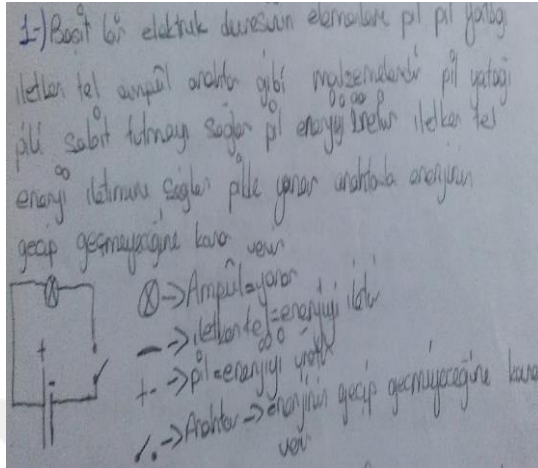 1-) Basit bir elektrik devresinin elemanları pil pil yatağı
iletken tel ampûl anahtar gibi malzemelerdir pil yatağı
pili sabit tutmayı sağlar pil enerjiyi üretir iletken tel
enerji iletimini sağlar pille yanar anahtarla enerjinin
geçip geçmeyeceğine karar verir
⊗ -> Ampûl = yanar
— -> iletken tel = enerjiyi iletir
+ - -> pil = enerjiyi üretir
-> Anahtar -> enerjinin geçip geçmiyeceğine karar
verir
+